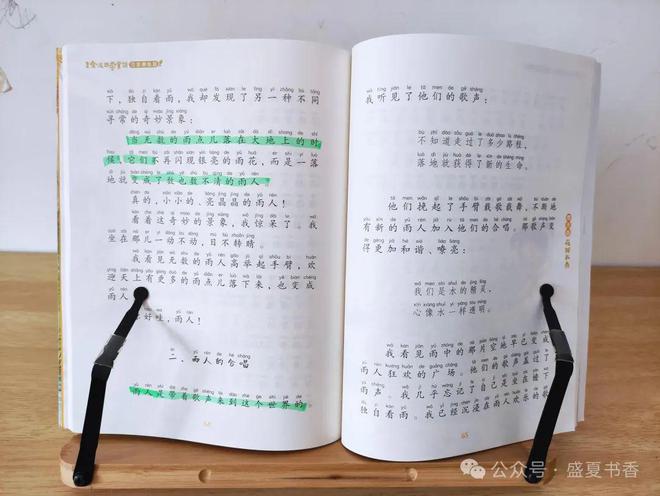 下,独自看雨,我却发现了另一种不同
寻常的奇妙景象:
当无数的雨点儿落在大地上的时
候,它们不再闪现银亮的雨花,而是一落
地就变成了数也数不清的雨人!
真的,小小的、亮晶晶的雨人!
看着这奇妙的景象,我惊呆了。我
坐在那儿一动不动,目不转睛。
我看见无数的雨人高举起手臂,欢
迎天上有更多的雨点儿落下来,也变成
雨人
好哇,雨人!
二、雨人的合唱
雨人是带着歌声来到这个世界的。
我听见了他们的歌声:
不知道走过了多少路程,
落地就获得了新的生命。
他们挽起了手臂载歌载舞,不断地
有新的雨人加入他们的合唱。那歌声变
得更加和谐、嘹亮:
我们是水的精灵,
心像水一样透明。
我看见雨中的那片空地早已变成
雨人狂欢的广场。他们的歌声盖过了
雨声。我几乎忘记了自己是坐在檐下
独自看雨。我已经沉浸在雨人欢乐的歌
65
公众号·盛夏书香